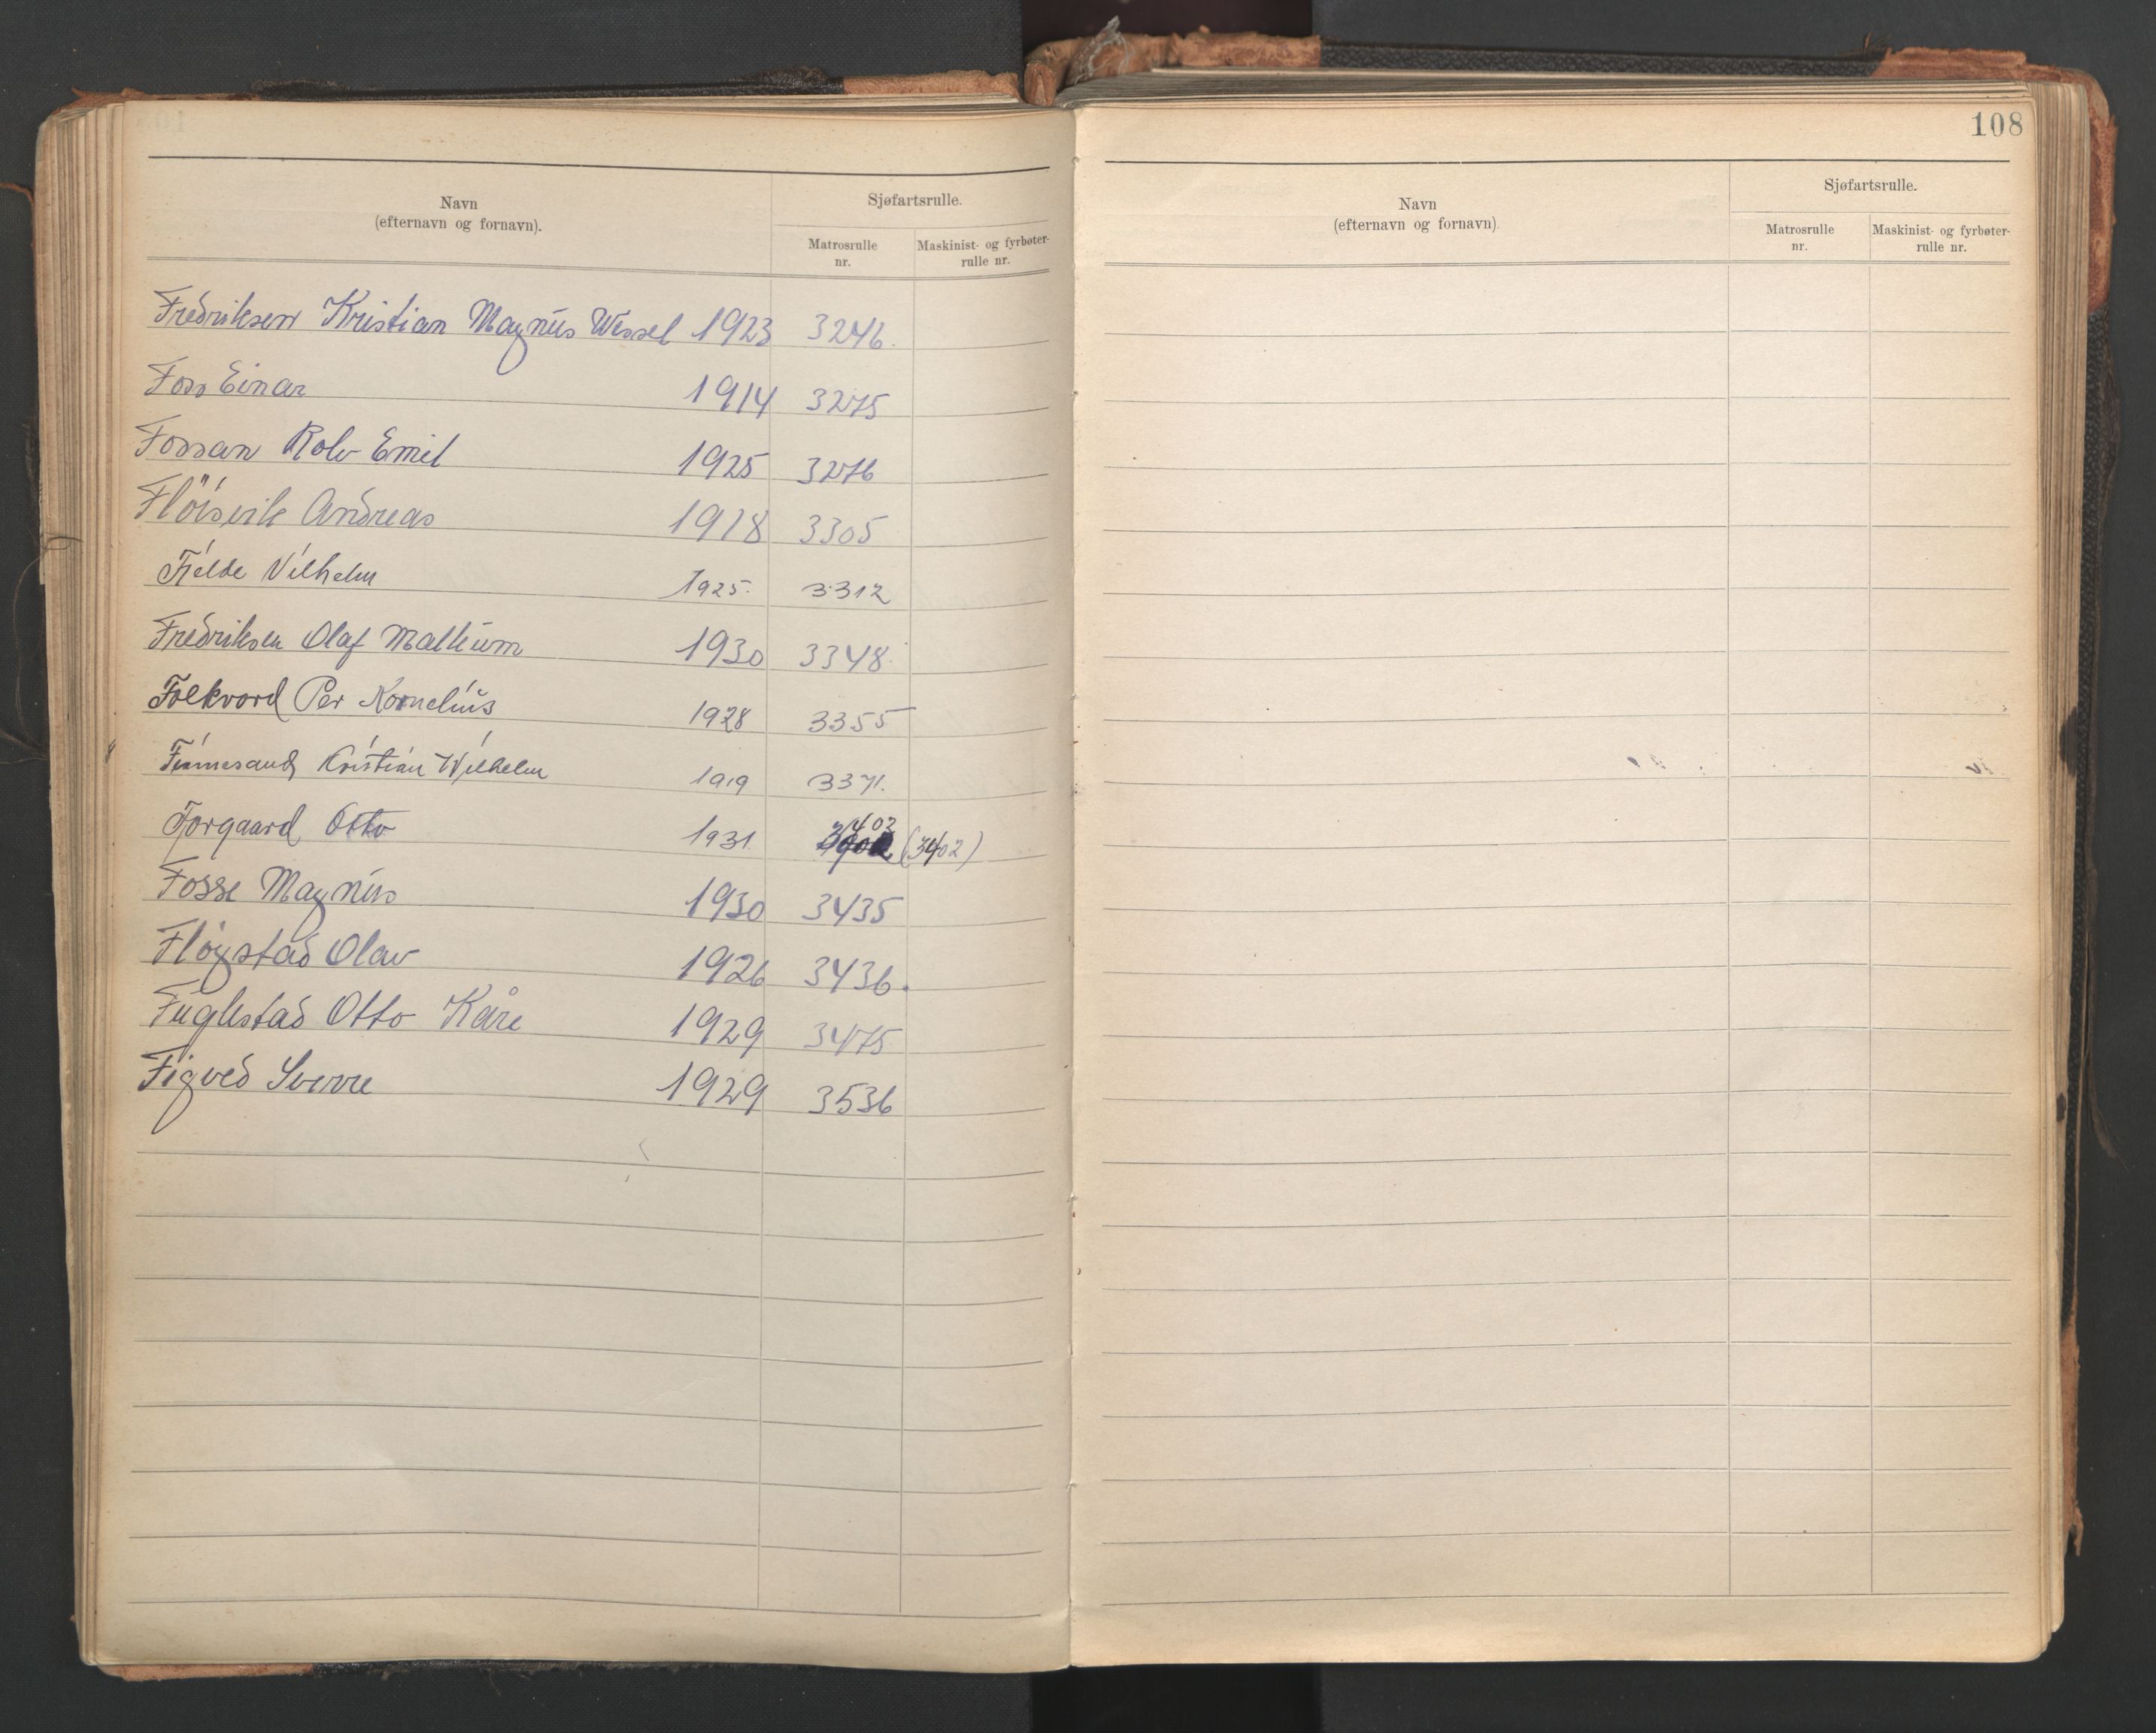 Navn
(efternavn og fornavn).
Sjøfartsrulle.
Matrosrulle
nr.
Maskinist- og fyrbøter-
rulle nr.
Fredriksen Kristian Magnus Wessel 1923 3246.
Foss Einar 1914 3275
Fossan Rolv Emil 1925 3276
Flöisvik Andreas 1918 3305
Fjelde Vilhelm 1925. 3312
Fredriksen Olaf 1930 3348.
Folkvord Per Kornelius 1928 3355
Finnesand Kristian Wilhelm 1919 3371.
Fjorgaard Otto 1931 3402 (3402)
Fosse Magnus 1930 3435
Fløgstad Olav 1926 3436.
Fuglestad Otto Kåre 1929 3475
Figved Sverre 1929 3536
108
Navn
(efternavn og fornavn).
Sjøfartsrulle.
Matrosrulle
nr.
Maskinist- og fyrbøter-
rulle nr.